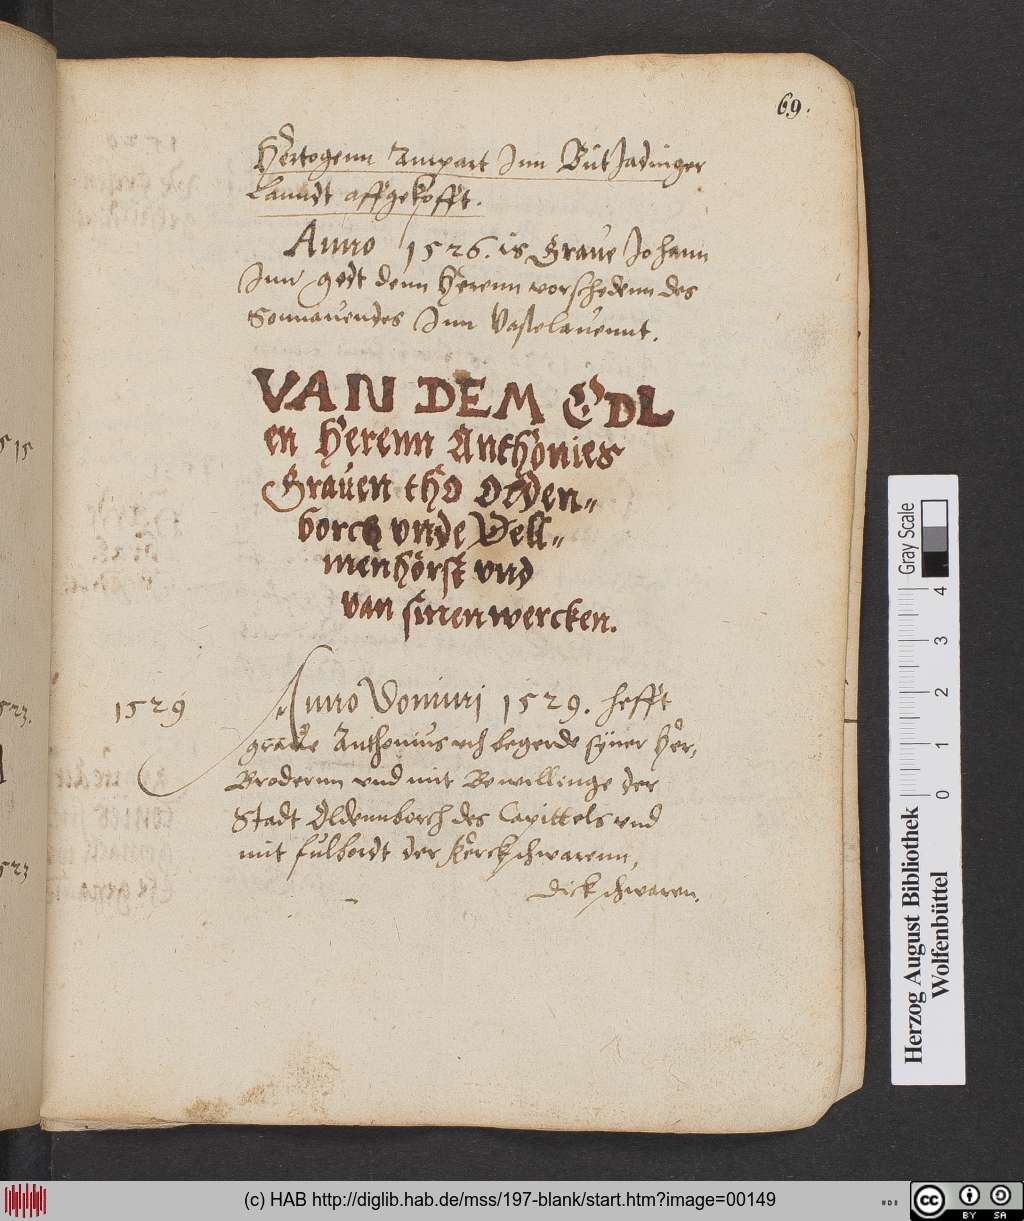 69.
Hertogenn Ampart Inn Butjadinger
Lanndt affgekofft.
Anno 1526. is Graue Johann
Inn gedt denn Herenn vorschedenn des
Sonnauendes Inn Vastelauennt.
VAN DEM EDL
en Herenn Anthonies
Grauen tho Olden-
borch vnde Dell-
menhorst vnd
van sinen wercken.
1529
Anno Domini 1529. hefft
graue Anthonius vth begerde syner Her,
Brodernn vnd mit Bewillinge der
Stadt Oldennborch des Capittels vnd
mit fulbordt der Kerckschwarenn,
Dickschwaren.
515
523.
523
Gray Scale
0 1 2 3 4
Herzog August Bibliothek
Wolfenbüttel
(c) HAB http://diglib.hab.de/mss/197-blank/start.htm?image=00149
cc BY SA